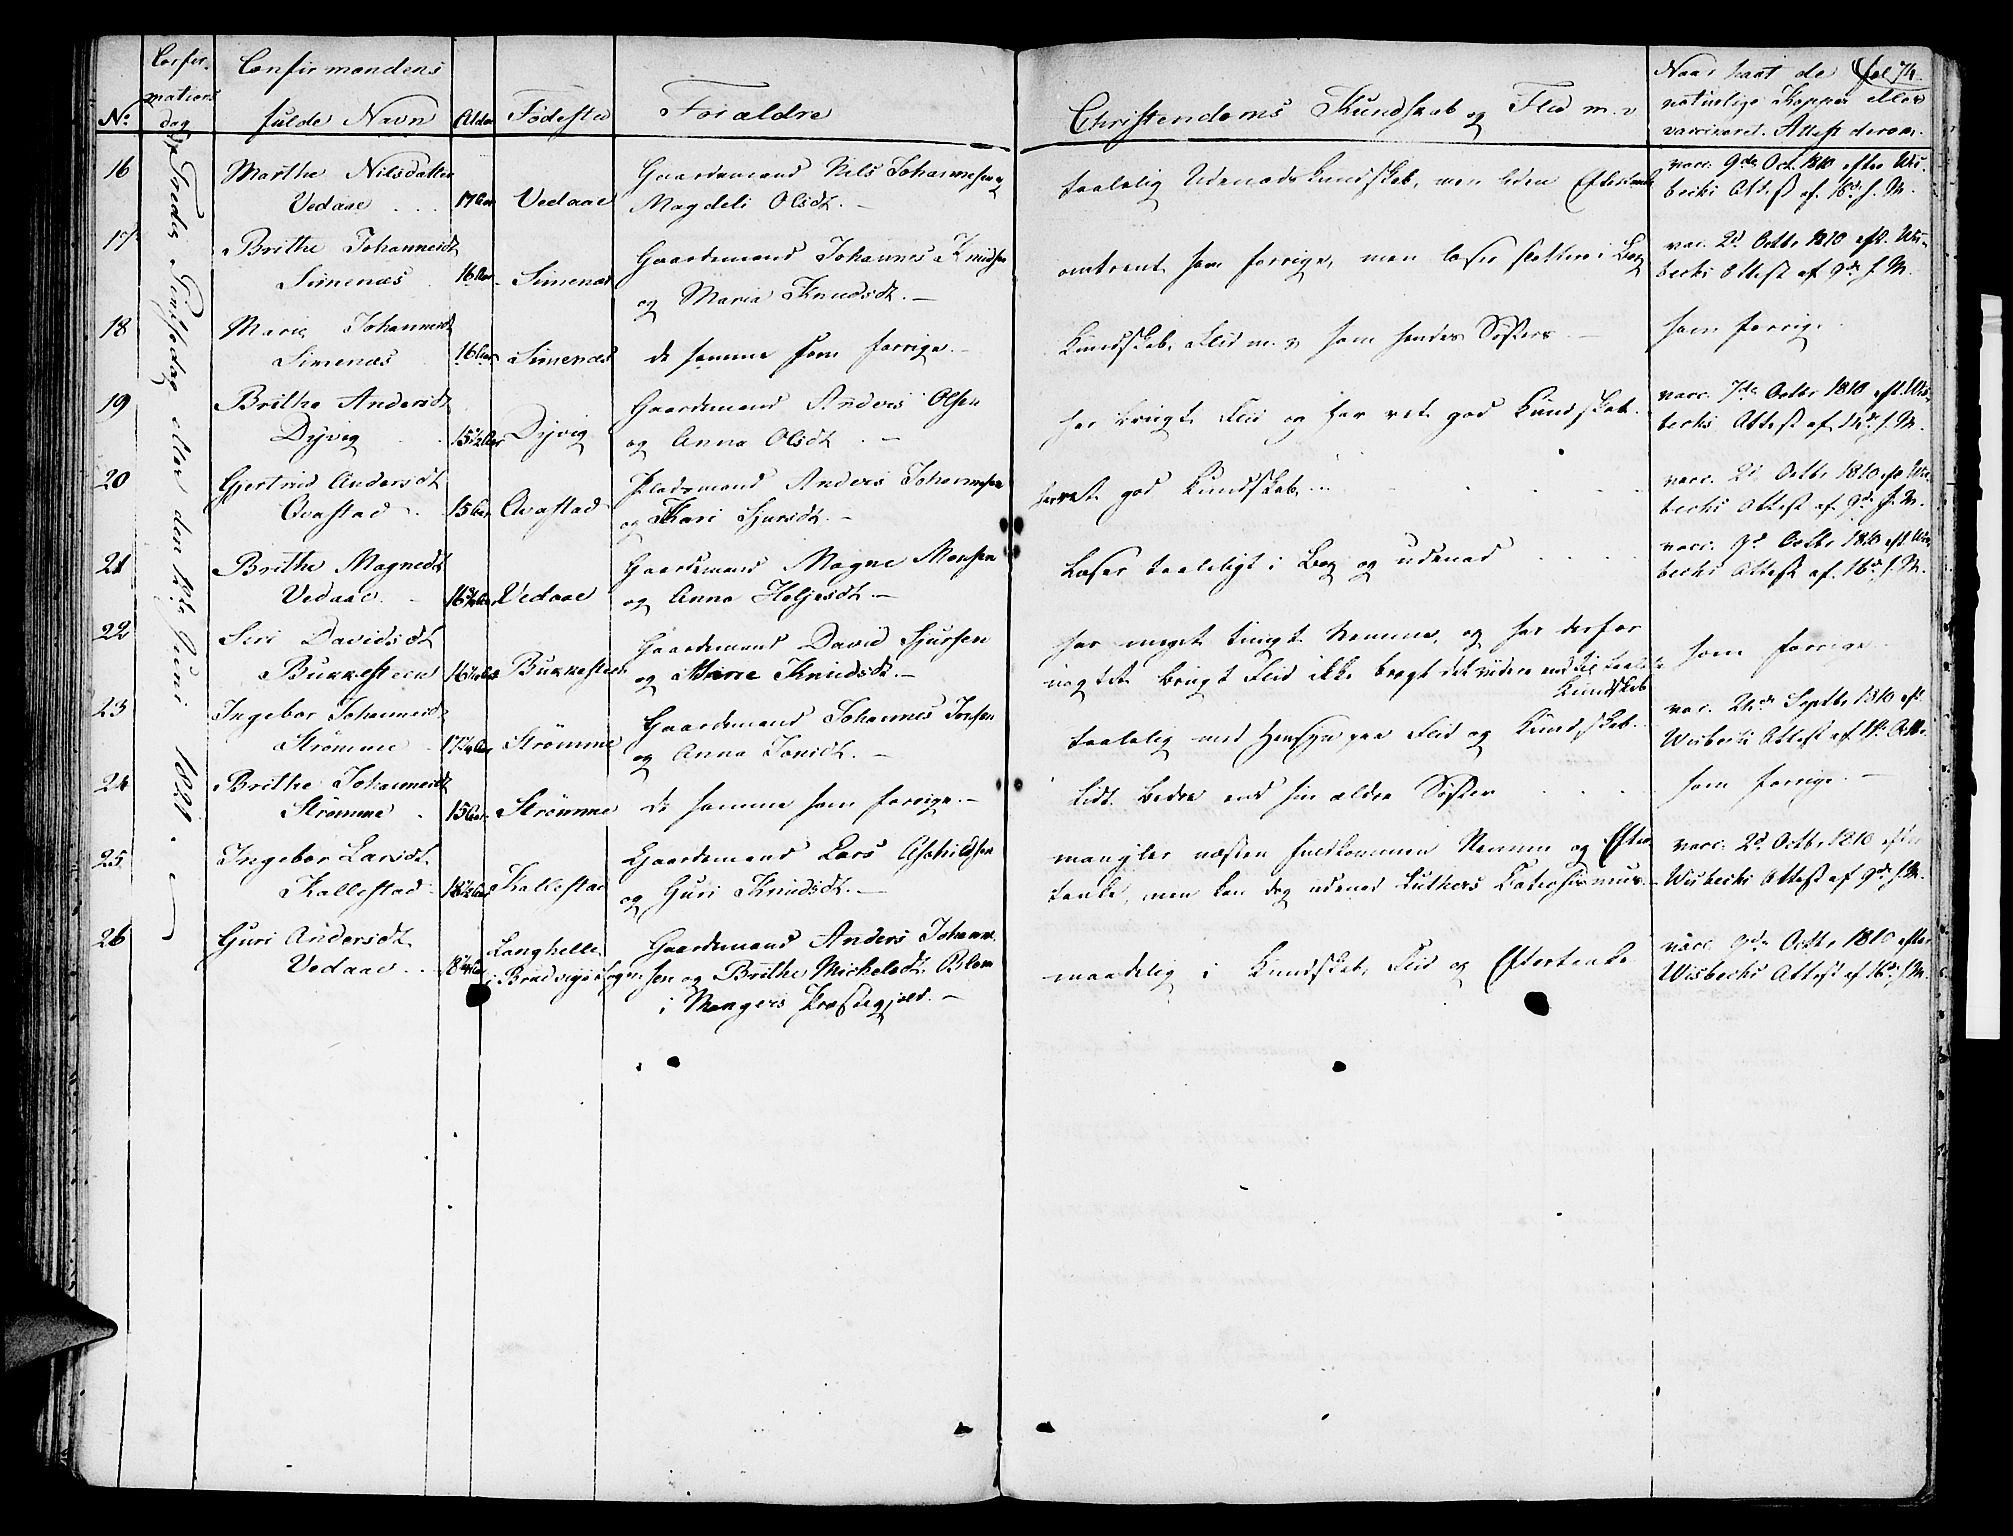 Confir-
mations
dag
No
Confirmandens
fulde Navn
Alder
Fødested
Forældre
Christendoms Kundskab og Flid m. v
Naar havt de
naturlige Kopper eller
vaccineret. Attest derom.
fol 74.
Tredie Pintsedag eller den 12te Juni 1821.
16
Marthe Nilsdatter
Vedaae
17 Aar
Vedaae
Gaardmand Nils Johannesen
Magdeli Olsdt. —
taalelig Udenadskundskab, men liden Eftertanke
vacc. 9de Oct. 1810 efter Wis-
bechs Attest af 16de s. M.
17
Brithe Johannesdt
Simenæs
16 Aar
Simenæs
Gaardemand Johannes Knudsen
og Maria Knudsdt. —
omtrent som forrige, men læser slettere i Bog
vac. 2d Octbr 1810 eft. Wis-
bechs Attest af 9de s. M.
18
Marie Johannesdt
Simenæs
16 Aar
Simenæs
de samme som forrige. —
Kundskab, Flid m. v som hendes Søsters —
som forrige
19
Brithe Andersdt
Dyvig
15½ Aar
Dyvig
Gaardemand Anders Olsen
og Anna Olsdt. —
har brugt Flid og har ret god Kundskab.
vacc. 7de Octbr 1810 eft. Wis-
bechs Attest af 14de s. M.
20
Gjertrud Andersdt
Qvastad
15 Aar
Qvastad
Pladsmand Anders Johannesen
og Kari Sjursdt. —
har ret god Kundskab
vacc. 2d Octbr 1810 eft Wis-
bechs Attest af 9de s. M.
21
Brithe Magnedt
Vedaae
16¼ Aar
Vedaae
Gaardemand Magne Monsen
og Anna Heljesdt —
Læser taaleligt i Bog og udenad
vacc. 9d Octbr 1810 eft Wis-
bechs Attest af 16de s. M.
22
Siri Davidsdt
Bukkesteen
16¼ Aar
Bukkesteen
Gaardemand David Sjursen
og Marie Knudsdt. —
har meget tungt Nemme, og har derfor
uagtet brugt Flid ikke bragt det videre end til taalelig
Kundskab
som forrige
23
Ingebor Johannesdt
Strømme
17¼ Aar
Strømme
Gaardemand Johannes Jonsen
og Anna Jonsdt. —
taalelig med Hensyn paa Flid og Kundskab.
vac. 24de Septbr 1810 eft
Wisbechs Attest af 1ste Octbr
24
Brithe Johannesdt
Strømme
15 Aar
Strømme
de samme som forrige. —
lidt bedre end sin ældre Søster
som forrige. —
25
Ingebor Larsdt.
Kallestad
18½ Aar
Kallestad
Gaardemand Lars Aschildsen
og Guri Knudsdt. —
mangler næsten fuldkommen Nemme og Efter-
tanke, men kan dog udenad Luthers Catechismus. —
vacc. 2d Octbr 1810 efter
Wisbechs Attest af 9de s. M.
26
Guri Andersdt.
Vedaae
18¼ Aar
Langhelle
i Bradvigs Sogn
Gaardemand Anders Johanne-
sen og Brithe Michelsdt. Blom
i Mangers Præstegjeld. —
maadelig i Kundskab, Flid og Eftertanke
vacc. 9de Octbr 1810 efter
Wisbechs Attest af 16de s. M.